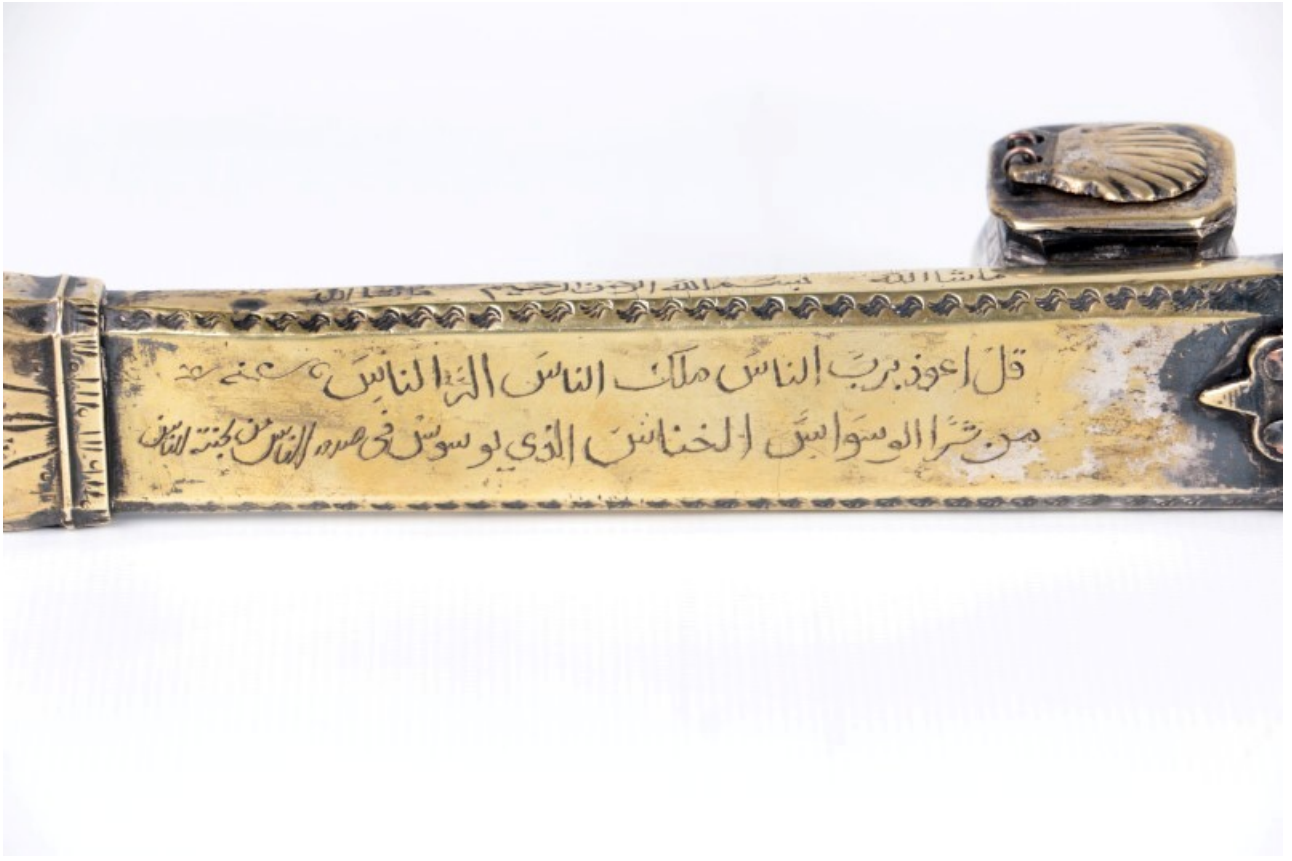 ماشاالله بسم الله الرحمن الرحيم ماشاالله
قل اعوذ برب الناس ملك الناس اله الناس
من شر الوسواس الخناس الذي يوسوس في صدور الناس من الجنة الناس